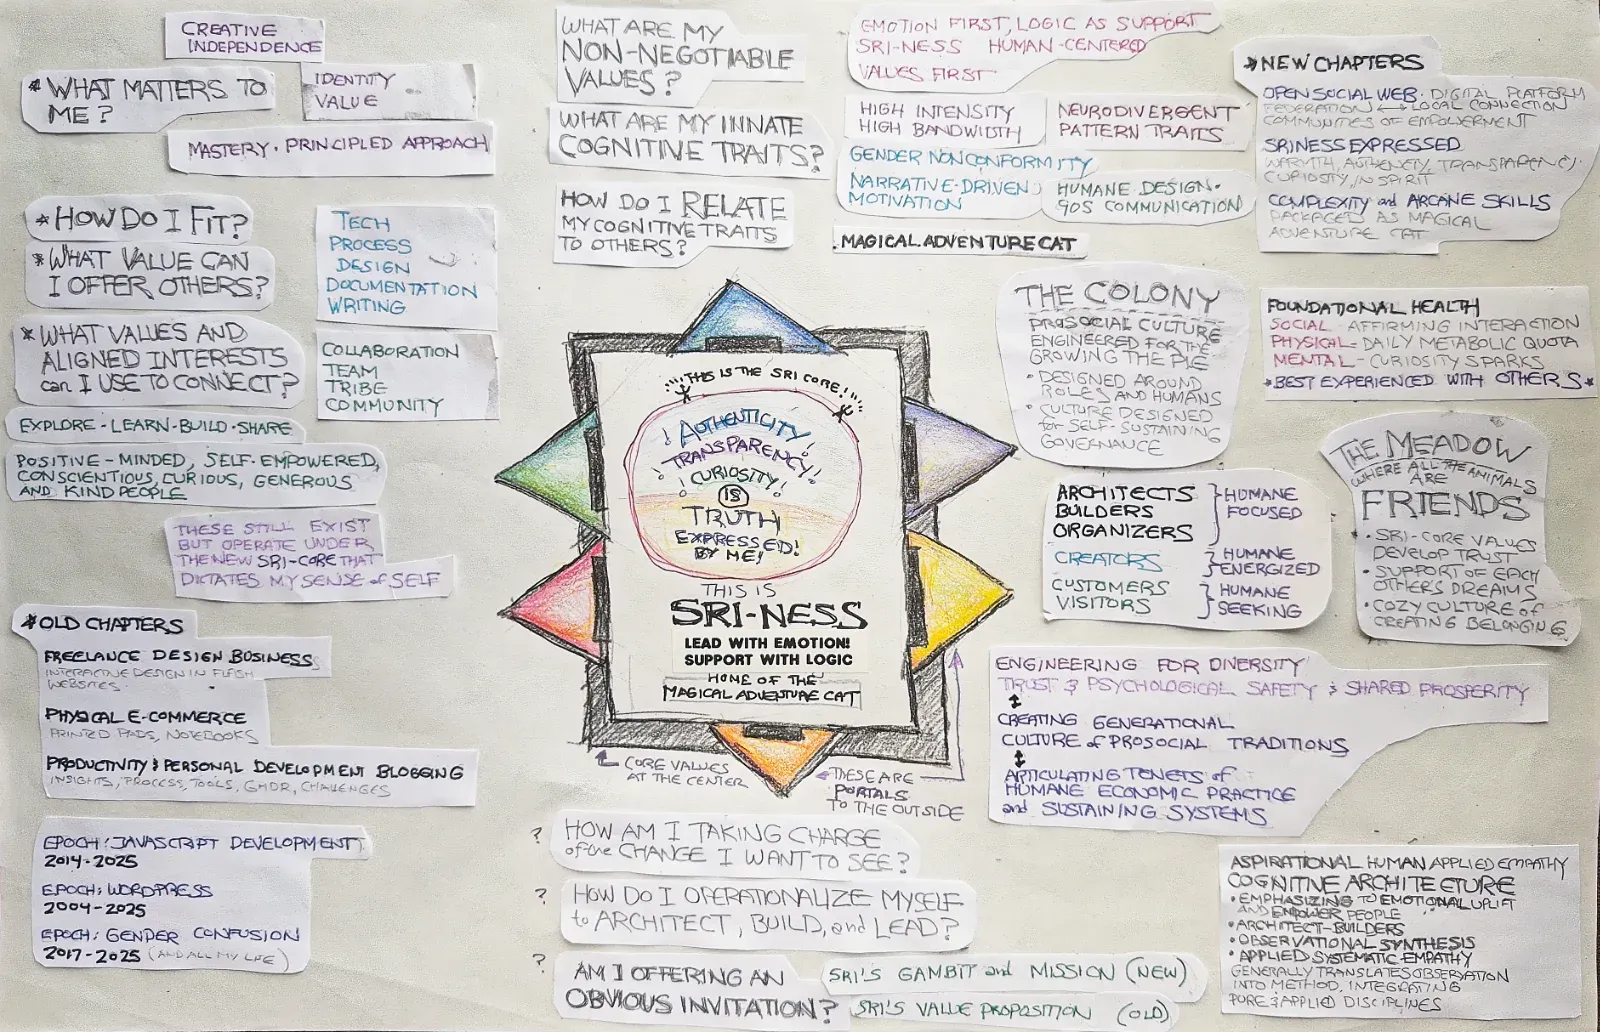 CREATIVE
INDEPENDENCE
* WHAT MATTERS TO
ME?
IDENTITY
VALUE
MASTERY · PRINCIPLED APPROACH
* HOW DO I FIT?
* WHAT VALUE CAN
I OFFER OTHERS?
TECH
PROCESS
DESIGN
DOCUMENTATION
WRITING
* WHAT VALUES AND
ALIGNED INTERESTS
can I USE TO CONNECT?
COLLABORATION
TEAM
TRIBE
COMMUNITY
EXPLORE - LEARN - BUILD - SHARE
POSITIVE - MINDED, SELF-EMPOWERED,
CONSCIENTIOUS, CURIOUS, GENEROUS
AND KIND PEOPLE
THESE STILL EXIST
BUT OPERATE UNDER
THE NEW SRI-CORE THAT
DICTATES MY SENSE of SELF
* OLD CHAPTERS
FREELANCE DESIGN BUSINESS
INTERACTIVE DESIGN IN FLASH
WEBSITES
PHYSICAL E-COMMERCE
PRINTED PADS, NOTEBOOKS
PRODUCTIVITY & PERSONAL DEVELOPMENT BLOGGING
INSIGHTS, PROCESS, TOOLS, GHDR, CHALLENGES
EPOCH: JAVASCRIPT DEVELOPMENT
2014-2025
EPOCH: WORDPRESS
2004-2025
EPOCH: GENDER CONFUSION
2017-2025 (AND ALL MY LIFE)
WHAT ARE MY
NON-NEGOTIABLE
VALUES?
WHAT ARE MY INNATE
COGNITIVE TRAITS?
HOW DO I RELATE
MY COGNITIVE TRAITS
TO OTHERS?
EMOTION FIRST, LOGIC AS SUPPORT
SRI-NESS HUMAN-CENTERED
VALUES FIRST
HIGH INTENSITY
HIGH BANDWIDTH
NEURODIVERGENT
PATTERN TRAITS
GENDER NONCONFORMITY
NARRATIVE-DRIVEN
MOTIVATION
HUMANE DESIGN ·
90S COMMUNICATION
MAGICAL ADVENTURE CAT
THIS IS THE SRI CORE!
AUTHENTICITY
TRANSPARENCY
CURIOSITY
IS
TRUTH
EXPRESSED!
BY ME!
THIS IS
SRI-NESS
LEAD WITH EMOTION!
SUPPORT WITH LOGIC
HOME OF THE
MAGICAL ADVENTURE CAT
CORE VALUES
AT THE CENTER
THESE ARE
PORTALS
TO THE OUTSIDE
? HOW AM I TAKING CHARGE
of the CHANGE I WANT TO SEE?
? HOW DO I OPERATIONALIZE MYSELF
to ARCHITECT, BUILD, and LEAD?
? AM I OFFERING AN
OBVIOUS INVITATION?
SRI'S GAMBIT and MISSION (NEW)
SRI'S VALUE PROPOSITION (OLD)
* NEW CHAPTERS
OPEN SOCIAL WEB · DIGITAL PLATFORM
FEDERATION ↔ LOCAL CONNECTION
COMMUNITIES OF EMPOWERMENT
SRINESS EXPRESSED
WARMTH, AUTHENCITY, TRANSPARENCY
CURIOSITY, IN SPIRIT
COMPLEXITY and ARCANE SKILLS
PACKAGED AS MAGICAL
ADVENTURE CAT
THE COLONY
PROSOCIAL CULTURE
ENGINEERED FOR THE
GROWING THE PIE
• DESIGNED AROUND
ROLES AND HUMANS
• CULTURE DESIGNED
for SELF-SUSTAINING
GOVERNANCE
FOUNDATIONAL HEALTH
SOCIAL - AFFIRMING INTERACTION
PHYSICAL - DAILY METABOLIC QUOTA
MENTAL - CURIOSITY SPARKS
* BEST EXPERIENCED WITH OTHERS *
ARCHITECTS
BUILDERS
ORGANIZERS
HUMANE
FOCUSED
CREATORS
HUMANE
ENERGIZED
CUSTOMERS
VISITORS
HUMANE
SEEKING
THE MEADOW
WHERE ALL THE ANIMALS
ARE
FRIENDS
• SRI-CORE VALUES
DEVELOP TRUST
• SUPPORT OF EACH
OTHER'S DREAMS
• COZY CULTURE of
CREATING BELONGING
ENGINEERING FOR DIVERSITY
TRUST & PSYCHOLOGICAL SAFETY & SHARED PROSPERITY
↕
CREATING GENERATIONAL
CULTURE of PROSOCIAL TRADITIONS
↕
ARTICULATING TENETS of
HUMANE ECONOMIC PRACTICE
and SUSTAINING SYSTEMS
ASPIRATIONAL HUMAN APPLIED EMPATHY
COGNITIVE ARCHITECTURE
• EMPHASIZING TO EMOTIONAL UPLIFT
AND EMPOWER PEOPLE
• ARCHITECT-BUILDERS
• OBSERVATIONAL SYNTHESIS
• APPLIED SYSTEMATIC EMPATHY
GENERALLY TRANSLATES OBSERVATION
INTO METHOD, INTEGRATING
PURE & APPLIED DISCIPLINES